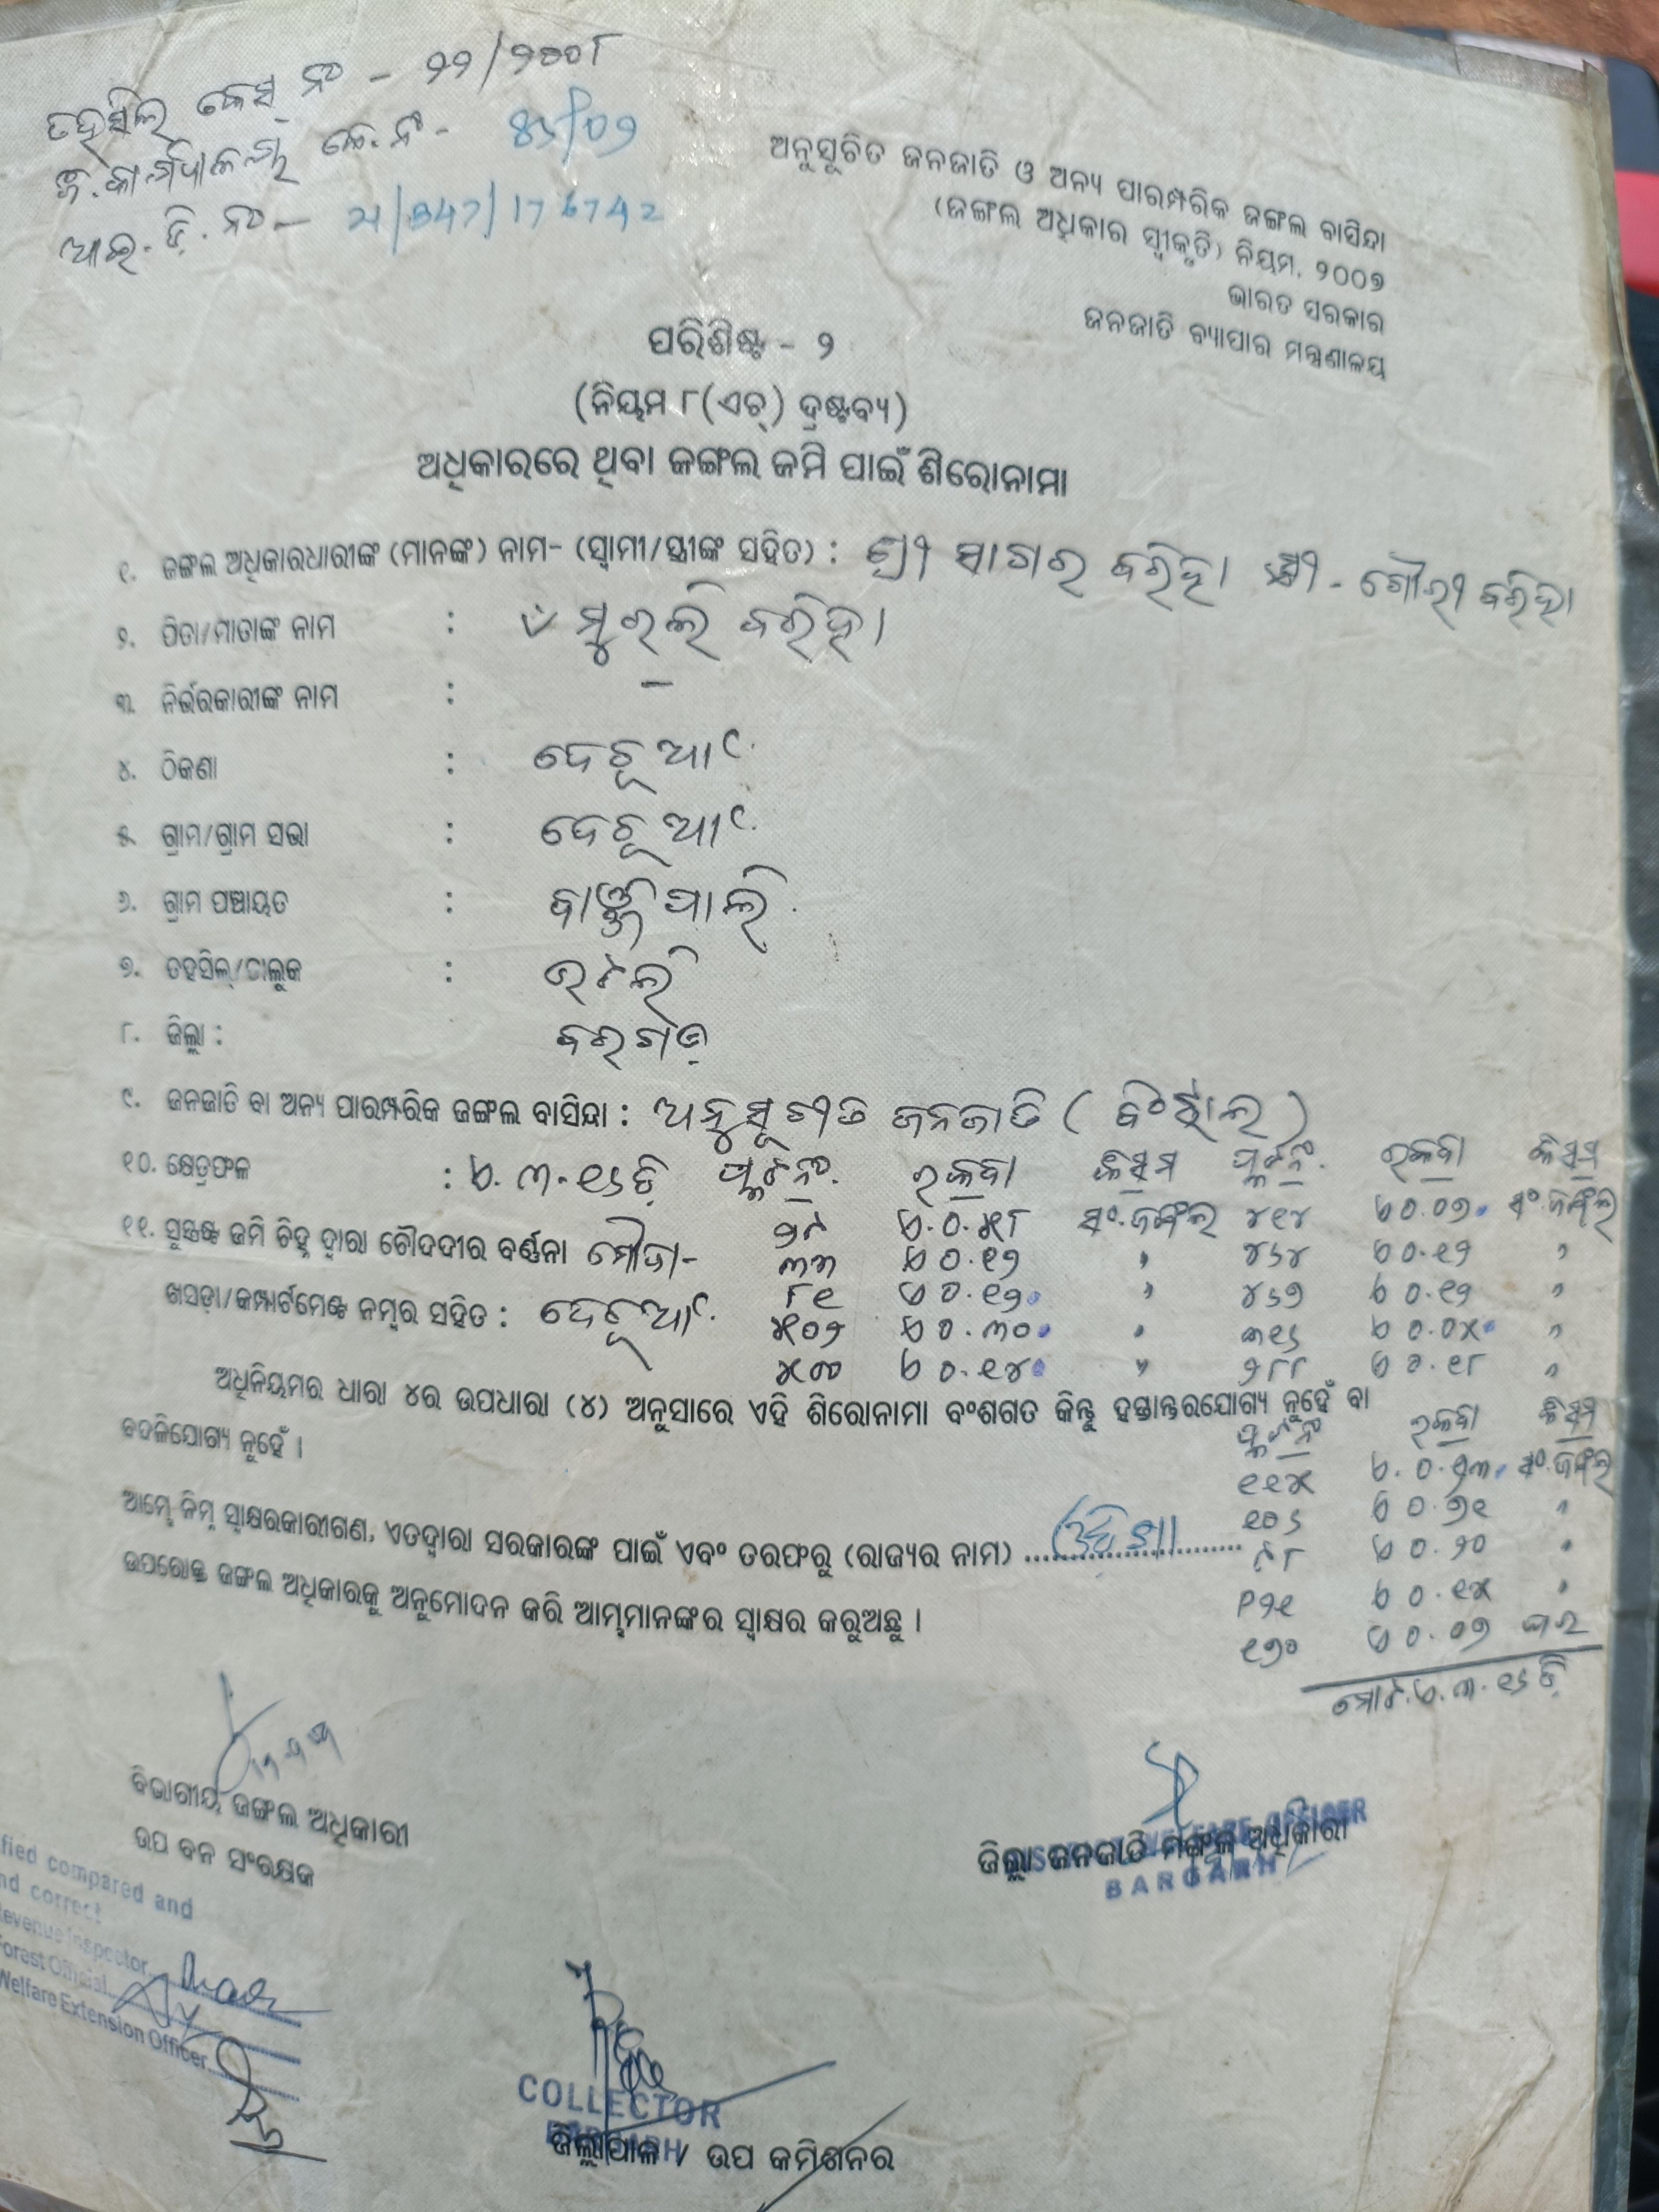 ତହସିଲ କେସ୍ ନଂ - ୨୨/୨୦୦୮
ଜି. କାର୍ଯ୍ୟାଳୟ କେ.ନଂ -
ଆଇ. ଡି. ନଂ - 21/347/176742
ଅନୁସୂଚିତ ଜନଜାତି ଓ ଅନ୍ୟ ପାରମ୍ପରିକ ଜଙ୍ଗଲ ବାସିନ୍ଦା
(ଜଙ୍ଗଲ ଅଧିକାର ସ୍ୱୀକୃତି) ନିୟମ, ୨୦୦୭
ଭାରତ ସରକାର
ଜନଜାତି ବ୍ୟାପାର ମନ୍ତ୍ରଣାଳୟ
ପରିଶିଷ୍ଟ - ୨
(ନିୟମ ୮(ଏଚ୍) ଦ୍ରଷ୍ଟବ୍ୟ)
ଅଧିକାରରେ ଥିବା ଜଙ୍ଗଲ ଜମି ପାଇଁ ଶିରୋନାମା
୧. ଜଙ୍ଗଲ ଅଧିକାରଧାରୀଙ୍କ (ମାନଙ୍କ) ନାମ- (ସ୍ୱାମୀ/ସ୍ତ୍ରୀଙ୍କ ସହିତ) : ଶ୍ରୀ ସାଗର ବରିହା ସ୍ତ୍ରୀ - ଗୌରୀ ବରିହା
୨. ପିତା/ମାତାଙ୍କ ନାମ : ମୁରଲି ବରିହା
୩. ନିର୍ଭରକାରୀଙ୍କ ନାମ : -
୪. ଠିକଣା : ଦେଚୂଆଁ
୫. ଗ୍ରାମ/ଗ୍ରାମ ସଭା : ଦେଚୂଆଁ
୬. ଗ୍ରାମ ପଞ୍ଚାୟତ : ବାଞ୍ଜିପାଲି
୭. ତହସିଲ୍/ତାଲୁକ : ଭଟଲି
୮. ଜିଲ୍ଲା : ବରଗଡ଼
୯. ଜନଜାତି ବା ଅନ୍ୟ ପାରମ୍ପରିକ ଜଙ୍ଗଲ ବାସିନ୍ଦା : ଅନୁସୂଚୀତ ଜନଜାତି (ବିଂଝାଲ)
୧୦. କ୍ଷେତ୍ରଫଳ : ଏ. ୩.୧୬ ଡି଼ ପ୍ଲଟ ନଂ. ରକବା କିସମ ପ୍ଲଟ ନଂ. ରକବା କିସମ
୨୯ ଏ.୦.୫୮ ସଂ.ଜଙ୍ଗଲ ୪୧୪ ଏ ୦.୦୭ ସଂ.ଜଙ୍ଗଲ
୧୧. ସୁସ୍ପଷ୍ଟ ଜମି ଚିହ୍ନ ଦ୍ୱାରା ଚୌଦଦୀର ବର୍ଣ୍ଣନା ମୌଜା- ୩୩ ଏ ୦.୧୨ " ୪୬୪ ଏ ୦.୧୨ "
୮୧ ଏ ୦.୧୨ " ୪୬୭ ଏ ୦.୧୨ "
ଖସଡ଼ା/କମ୍ପାର୍ଟମେଣ୍ଟ ନମ୍ବର ସହିତ : ଦେଚୂଆଁ ୫୦୨ ଏ ୦.୩୦ " ୩୧୬ ଏ ୦.୦୫ "
୫୦୦ ଏ ୦.୧୪ " ୨୮୮ ଏ ୦.୧୮ "
ଅଧିନିୟମର ଧାରା ୪ର ଉପଧାରା (୪) ଅନୁସାରେ ଏହି ଶିରୋନାମା ବଂଶଗତ କିନ୍ତୁ ହସ୍ତାନ୍ତରଯୋଗ୍ୟ ନୁହେଁ ବା
ବଦଳିଯୋଗ୍ୟ ନୁହେଁ ।
ପ୍ଲଟ ନଂ ରକବା କିସମ
୧୧୫ ସଂ.ଜଙ୍ଗଲ
୧୦୬ ଏ ୦.୭୧ "
ଆମ୍ଭେ ନିମ୍ନ ସ୍ୱାକ୍ଷରକାରୀଗଣ, ଏତଦ୍ୱାରା ସରକାରଙ୍କ ପାଇଁ ଏବଂ ତରଫରୁ (ରାଜ୍ୟର ନାମ) ....ଓଡ଼ିଶା....
୯୮ ଏ ୦.୨୦ "
ଉପରୋକ୍ତ ଜଙ୍ଗଲ ଅଧିକାରକୁ ଅନୁମୋଦନ କରି ଆମ୍ଭମାନଙ୍କର ସ୍ୱାକ୍ଷର କରୁଅଛୁ ।
ଏ ୦.୧୫ "
୧୭୦ ଏ ୦.୦୭ ଘର
ମୋଟ.ଏ.୩.୧୬ ଡି଼
ବିଭାଗୀୟ ଜଙ୍ଗଲ ଅଧିକାରୀ
ଉପ ବନ ସଂରକ୍ଷକ
ଜିଲ୍ଲା ଜନଜାତି ମଙ୍ଗଳ ଅଧିକାରୀ
WELFARE OFFICER
BARGARH
fied compared and
nd correct
Revenue Inspector
Forest Official
Welfare Extension Officer
COLLECTOR
BARGARH
ଜିଲ୍ଲାପାଳ / ଉପ କମିଶନର